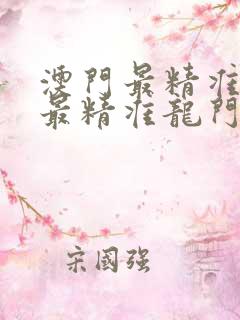 澳門最精准
最精准龍門
宋國强